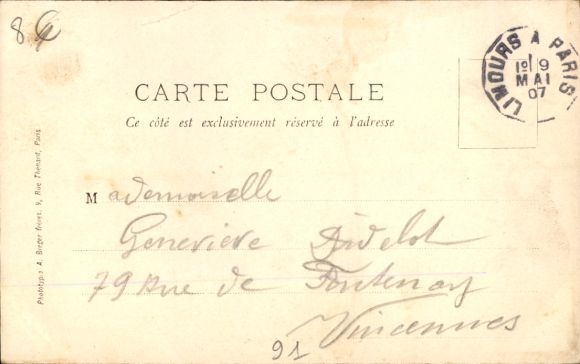 8
LIMOURS A PARIS
1º 9
MAI
07
CARTE POSTALE
Ce côté est exclusivement réservé à l'adresse
Mademoiselle
Geneviève Didelot
79 Rue de Fontenay
Vincennes
91
Phototypie A. Breger frères, 9, Rue Thénard, Paris